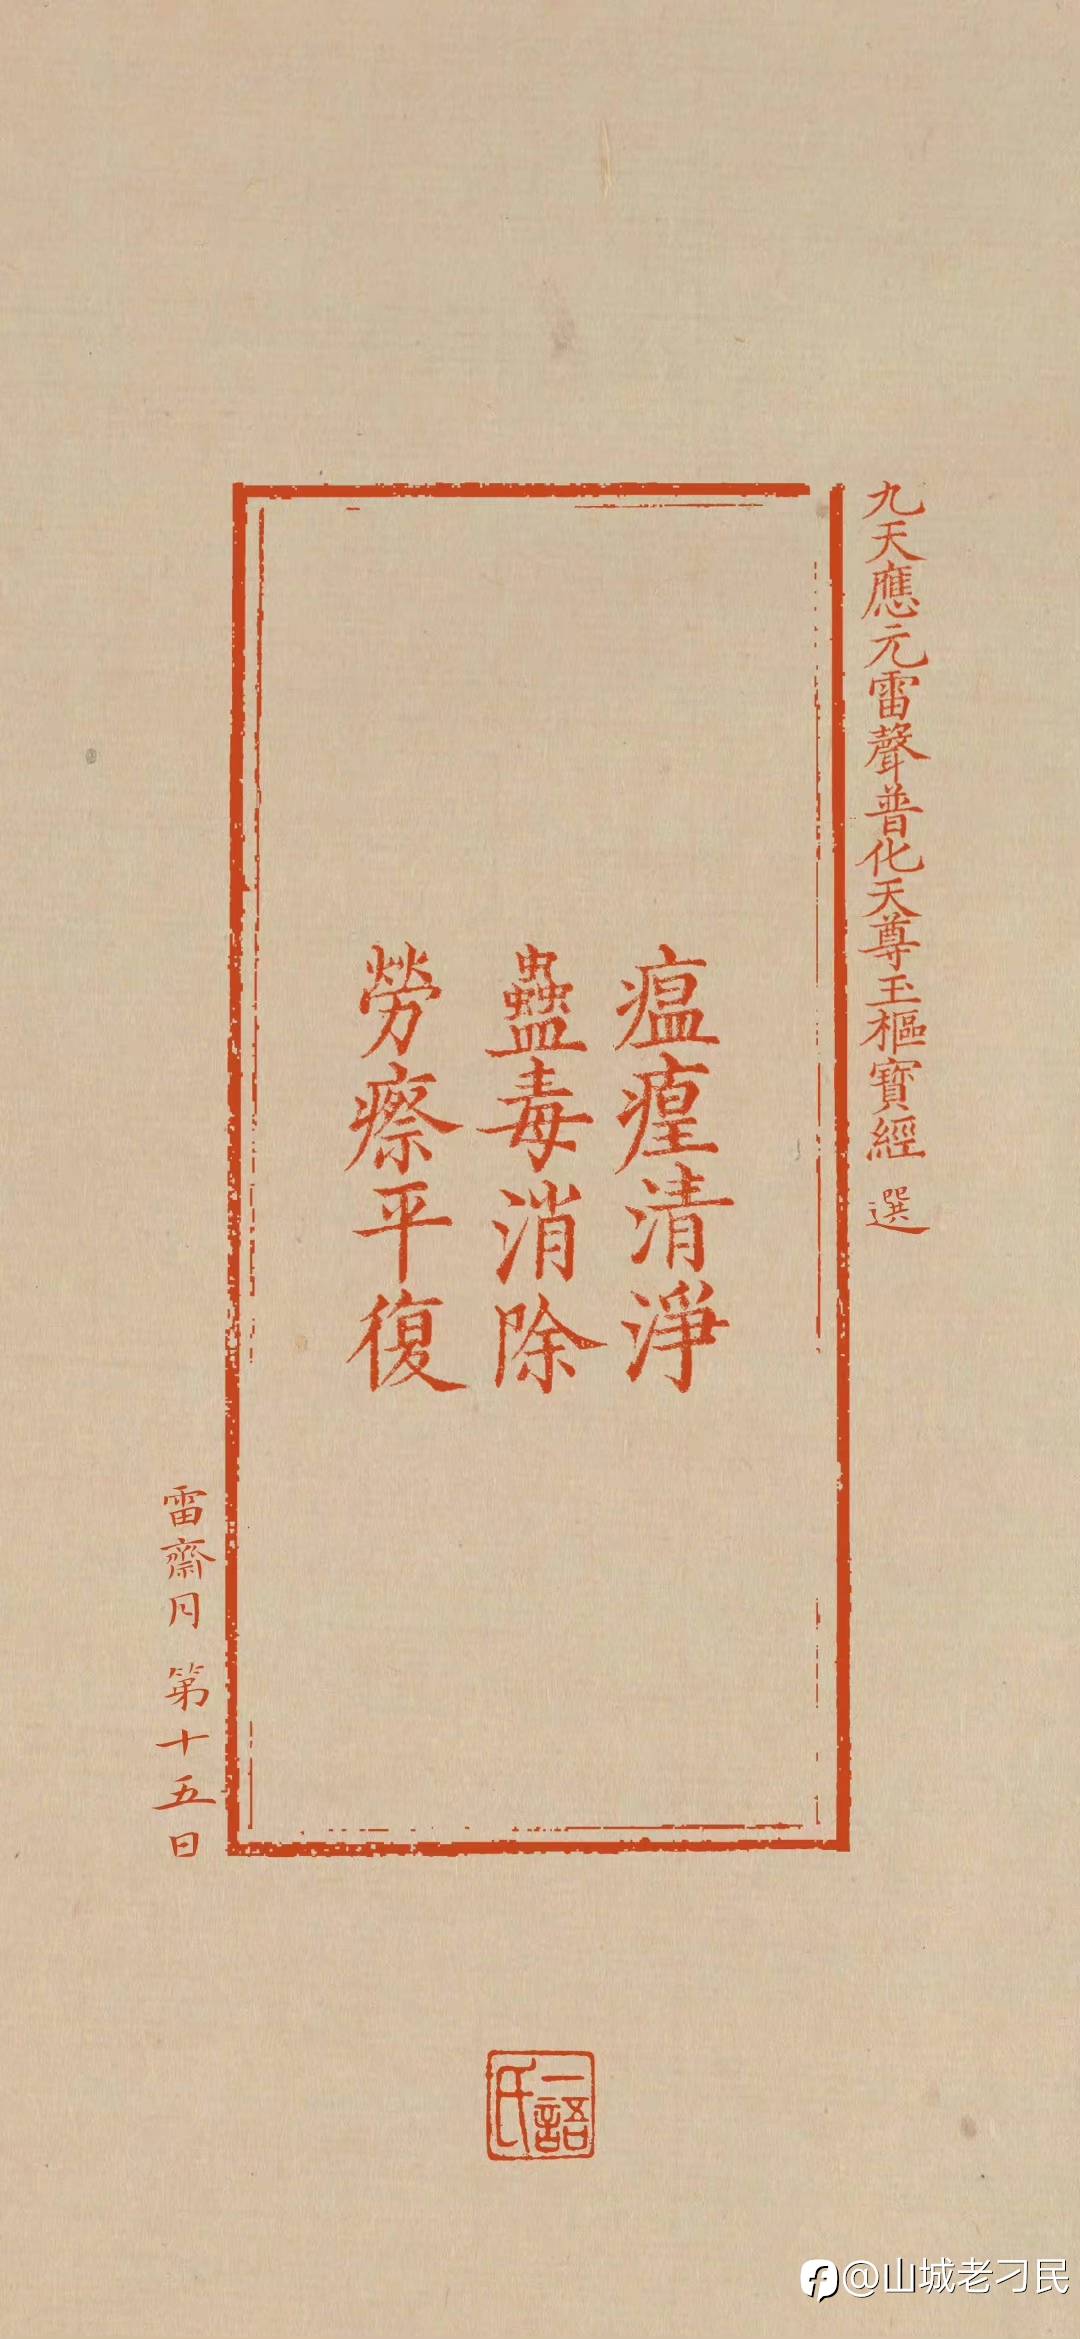 九天應元雷聲普化天尊玉樞寶經 選
瘟㾮清淨
蠱毒消除
勞瘵平復
雷齋月 第十五日
一語氏
@山城老刁民